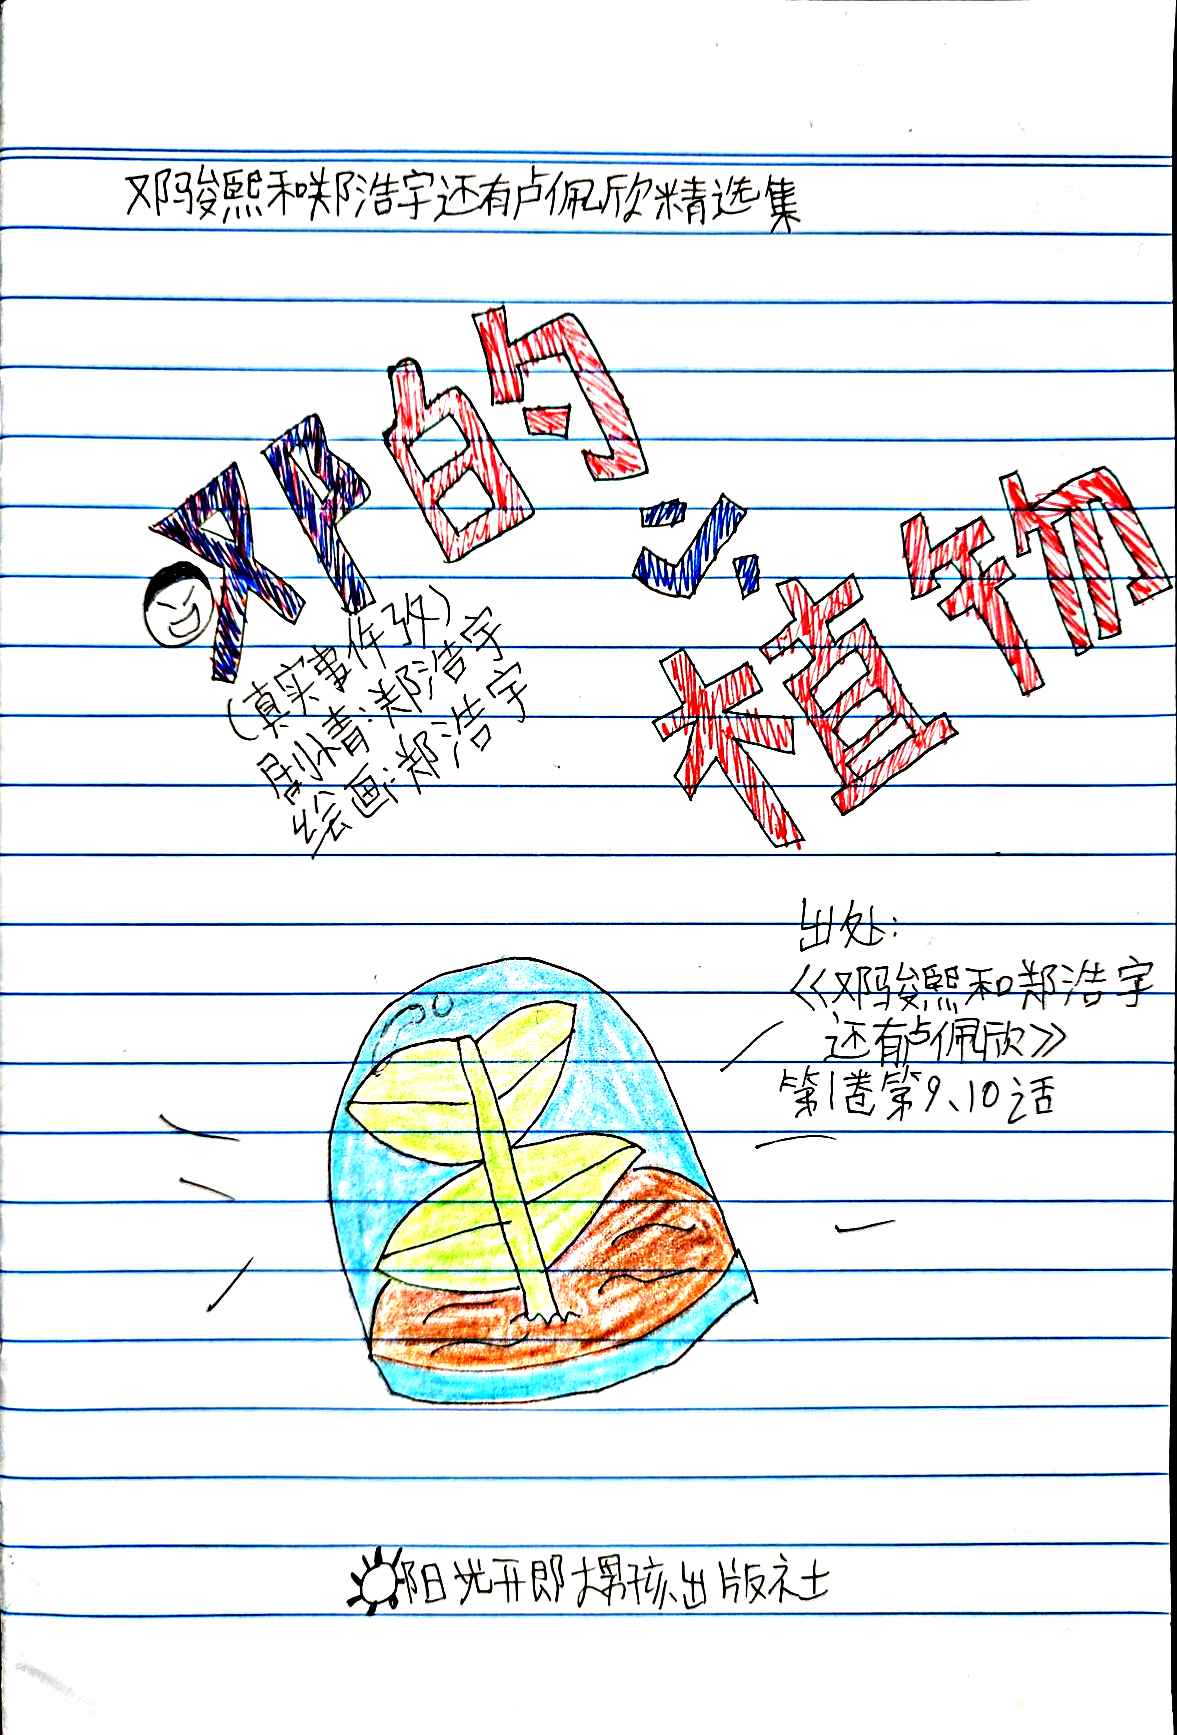 邓骏熙和郑浩宇还有卢佩欣精选集
邓的心植物
(真实事件改)
剧情:郑浩宇
绘画:郑浩宇
出处:
《邓骏熙和郑浩宇
还有卢佩欣》
第1卷第9、10话
阳光开郎大男孩出版社